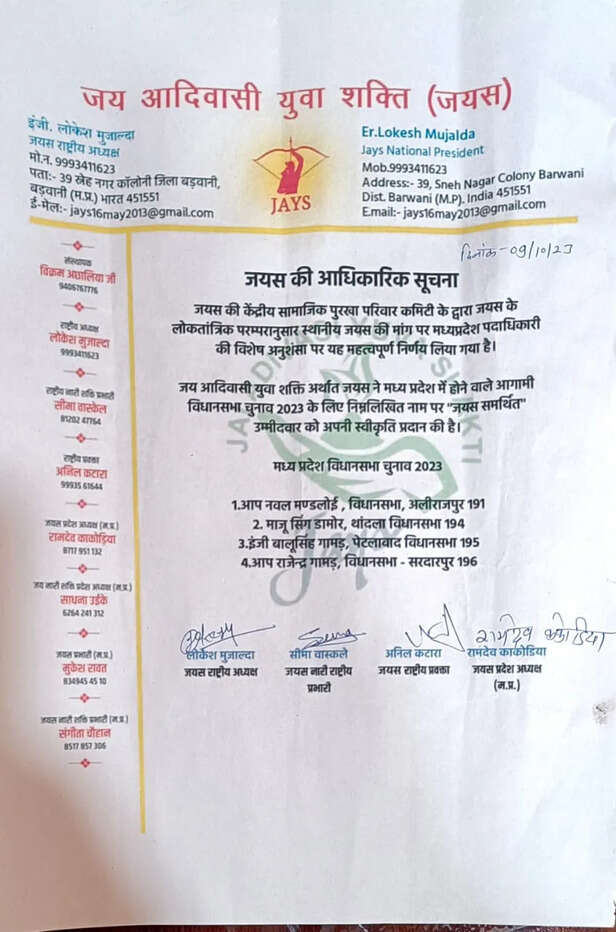 जय आदिवासी युवा शक्ति (जयस)
इंजी. लोकेश मुजाल्दा
जयस राष्ट्रीय अध्यक्ष
मो.न. 9993411623
पता:- 39 स्नेह नगर कॉलोनी जिला बड़वानी,
बड़वानी (म.प्र.) भारत 451551
ई-मेल:- jays16may2013@gmail.com
JAYS
Er.Lokesh Mujalda
Jays National President
Mob.9993411623
Address:- 39, Sneh Nagar Colony Barwani
Dist. Barwani (M.P). India 451551
Email:- jays16may2013@gmail.com
दिनांक-09/10/23
संस्थापक
विक्रम अछालिया जी
9406767776
राष्ट्रीय अध्यक्ष
लोकेश मुजाल्दा
9993411623
राष्ट्रीय नारी शक्ति प्रभारी
सीमा वास्केल
81202 47764
राष्ट्रीय प्रवक्ता
अनिल कटारा
99935 61644
जयस प्रदेश अध्यक्ष (म.प्र.)
रामदेव काकोड़िया
8717 951 132
जय नारी शक्ति प्रदेश अध्यक्ष (म.प्र.)
साधना उईके
6264 241 312
जयस प्रभारी (म.प्र.)
मुकेश रावत
834945 45 10
जयस नारी शक्ति प्रभारी (म.प्र.)
संगीता चौहान
8517 857 306
जयस की आधिकारिक सूचना
जयस की केंद्रीय सामाजिक पुरखा परिवार कमिटी के द्वारा जयस के
लोकतांत्रिक परम्परानुसार स्थानीय जयस की मांग पर मध्यप्रदेश पदाधिकारी
की विशेष अनुशंसा पर यह महत्वपूर्ण निर्णय लिया गया है।
जय आदिवासी युवा शक्ति अर्थात जयस ने मध्य प्रदेश में होने वाले आगामी
विधानसभा चुनाव 2023 के लिए निम्नलिखित नाम पर "जयस समर्थित"
उम्मीदवार को अपनी स्वीकृति प्रदान की है।
मध्य प्रदेश विधानसभा चुनाव 2023
1.आप नवल मण्डलोई , विधानसभा, अलीराजपुर 191
2. माजू सिंग डामोर, थांदला विधानसभा 194
3.इंजी बालूसिंह गामड़, पेटलावाद विधानसभा 195
4.आप राजेन्द्र गामड़, विधानसभा - सरदारपुर 196
रामदेव काकोडिया
लोकेश मुजाल्दा
जयस राष्ट्रीय अध्यक्ष
सीमा वास्कले
जयस नारी राष्ट्रीय
प्रभारी
अनिल कटारा
जयस राष्ट्रीय प्रवक्ता
रामदेव काकोडिया
जयस प्रदेश अध्यक्ष
(म.प्र.)